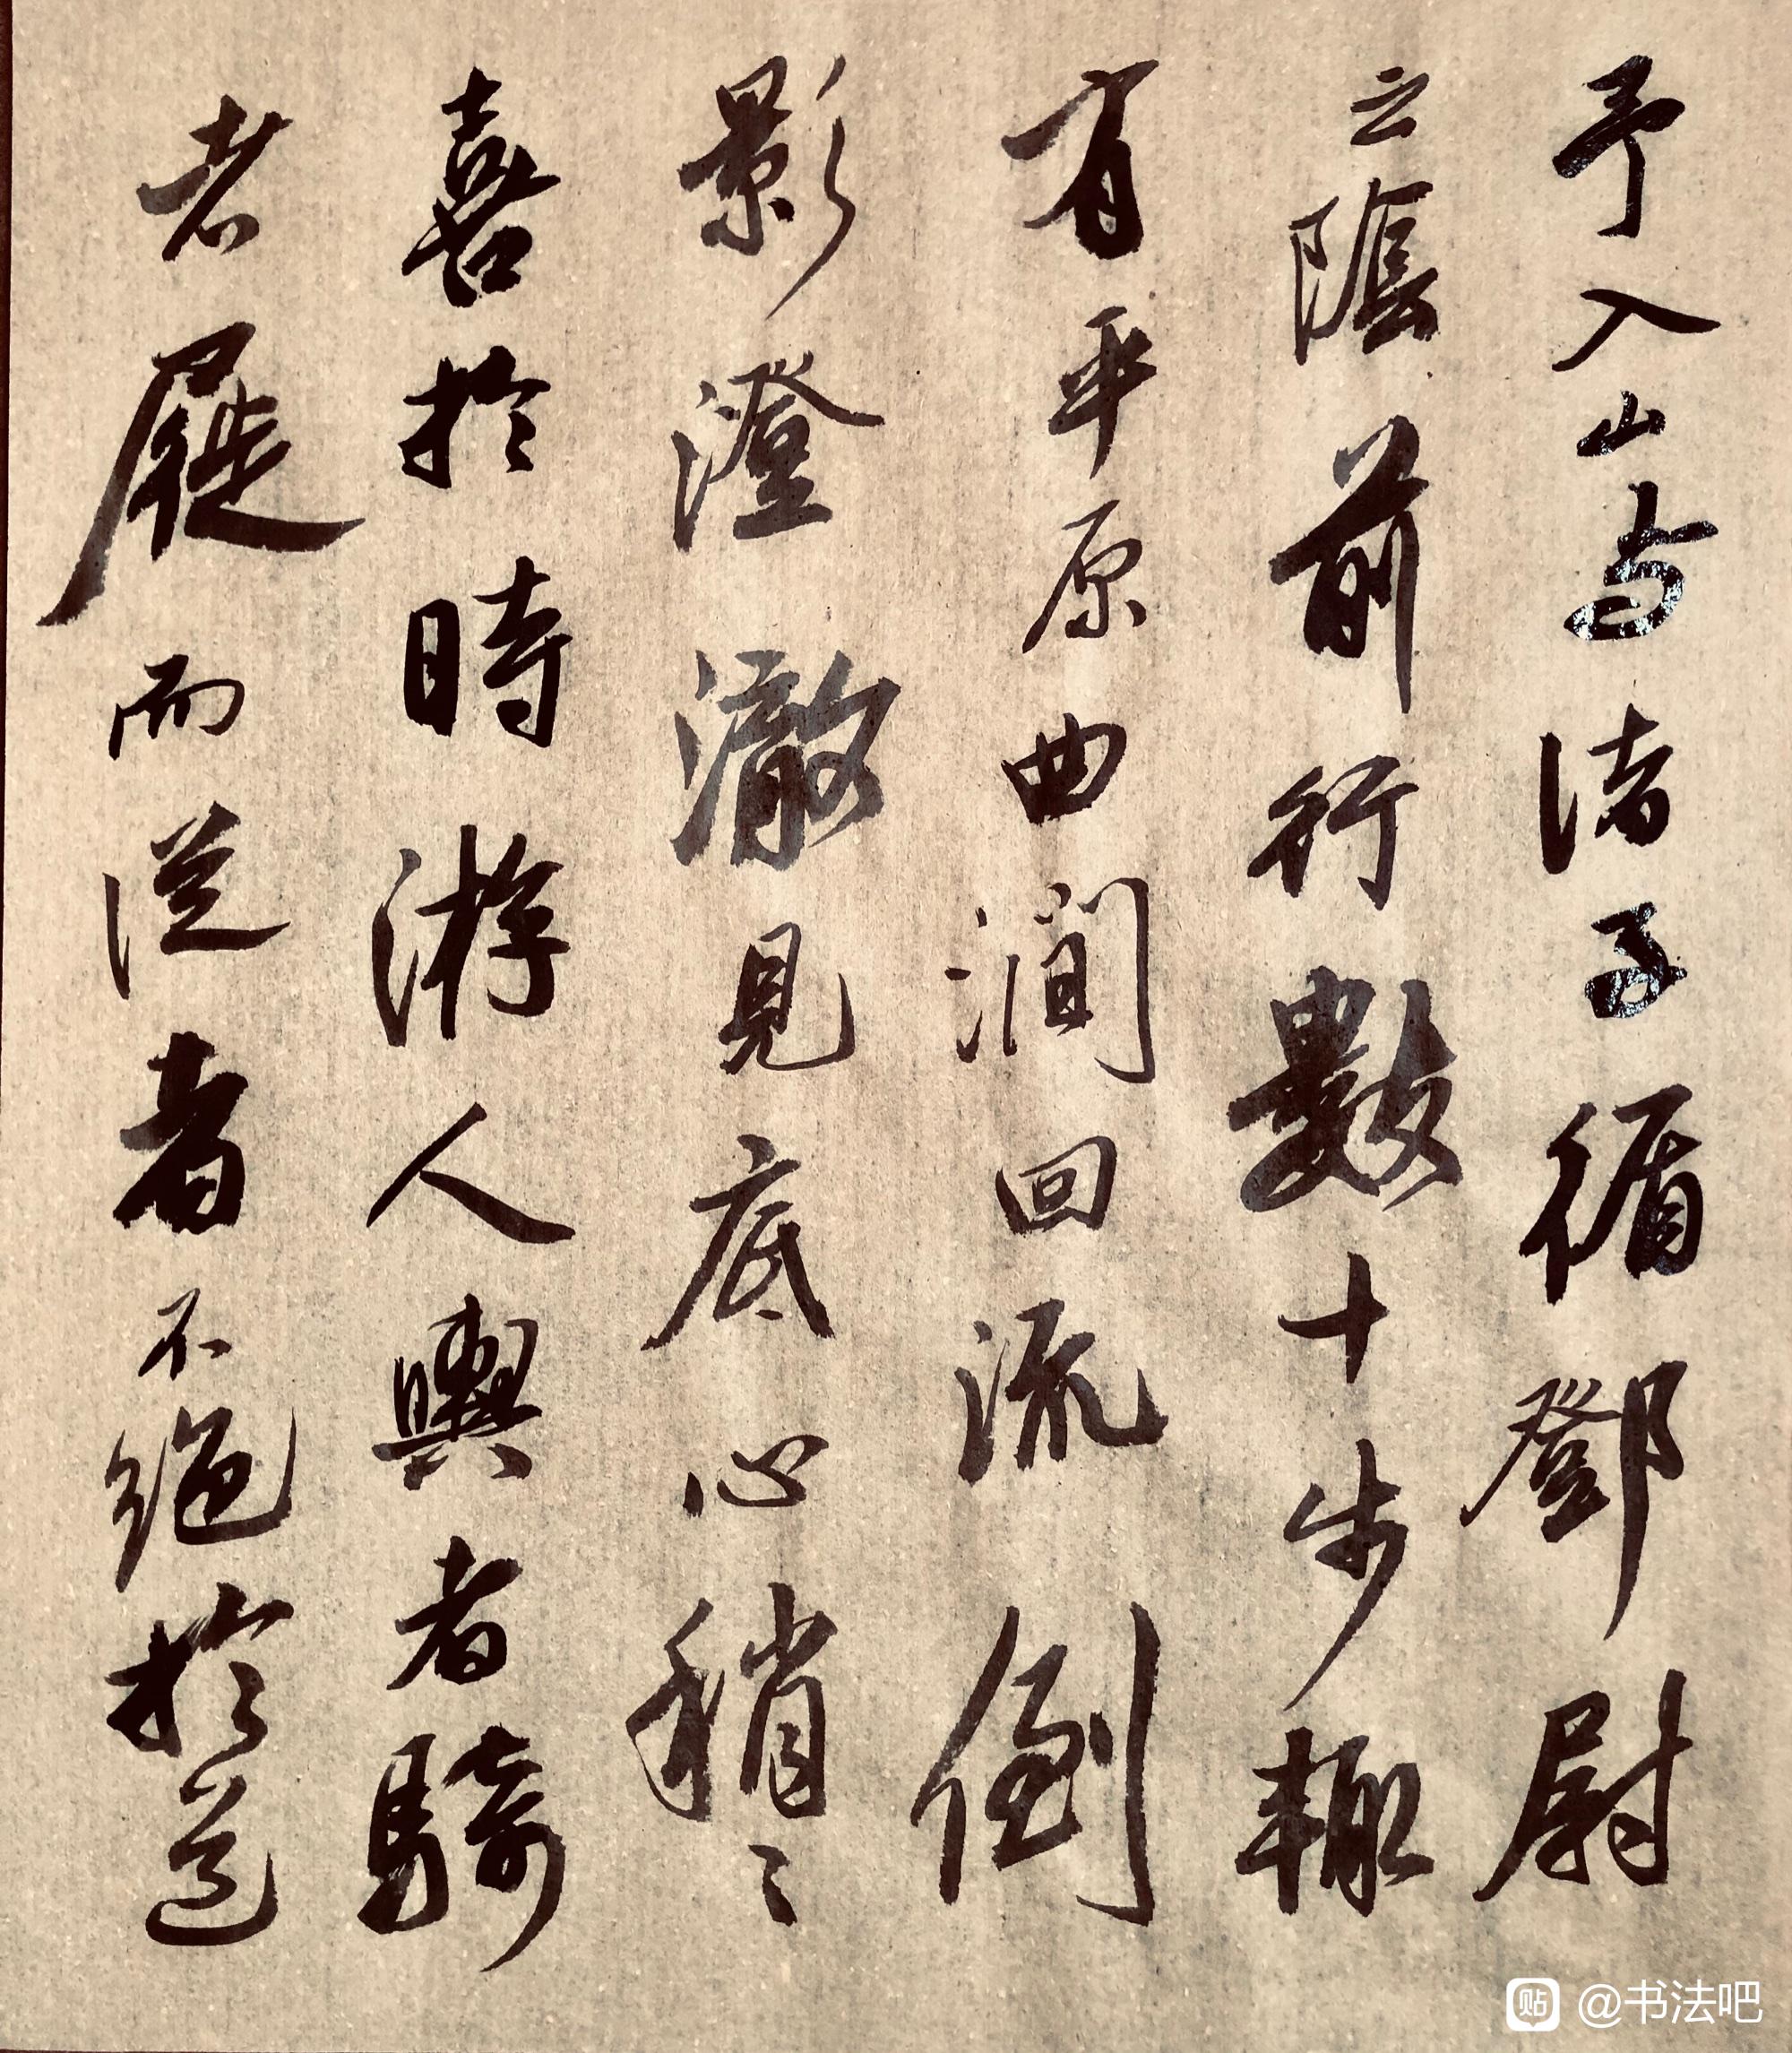 予入山与诸子循鄧尉
之陰前行數十步輙
有平原曲澗回流倒
影澄澈見底心稍々
喜於時游人輿者騎
者屣而從者不絕於道
貼 @书法吧